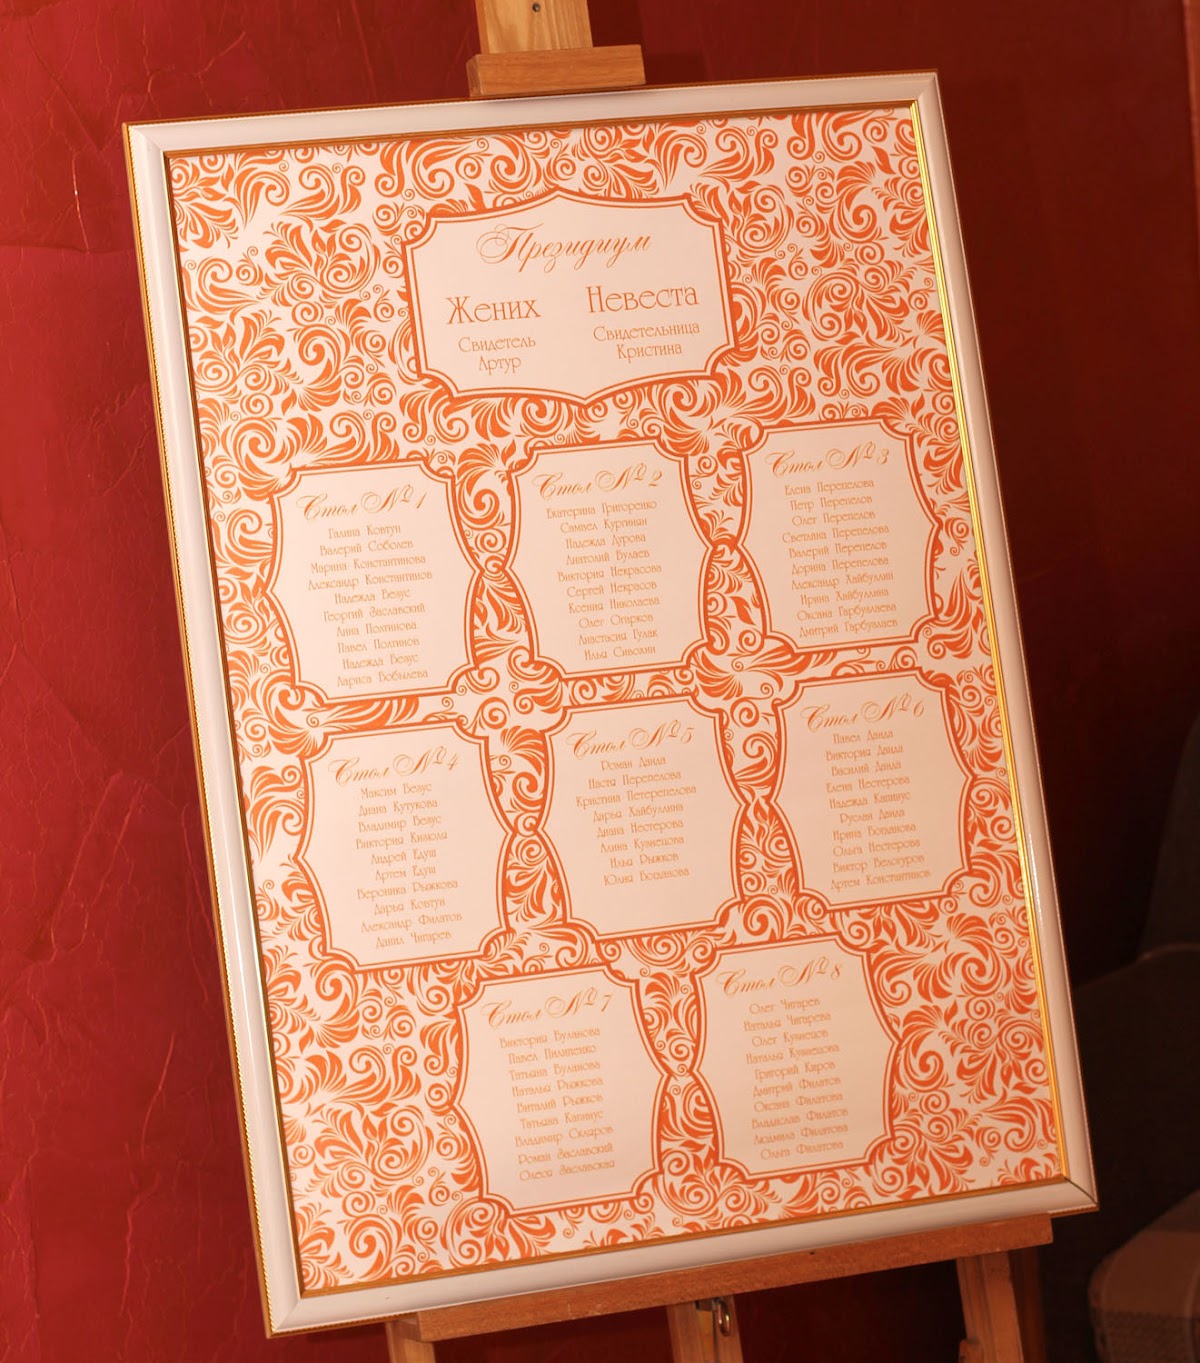 Президиум
Жених Невеста
Свидетель Свидетельница
Артур Кристина
Стол №1
Галина Ковтун
Валерий Соболев
Марина Константинова
Александр Константинов
Надежда Безус
Георгий Заславский
Анна Полтинова
Павел Полтинов
Надежда Безус
Лариса Бобылева
Стол №2
Екатерина Григоренко
Самвел Кургинян
Надежда Дурова
Анатолий Булаев
Виктория Некрасова
Сергей Некрасов
Ксения Николаева
Олег Огарков
Анастасия Гулак
Илья Сиволин
Стол №3
Елена Перепелова
Петр Перепелов
Олег Перепелов
Светлана Перепелова
Валерий Перепелов
Дорина Перепелова
Александр Хайбуллин
Ирина Хайбуллина
Оксана Гарбузлаева
Дмитрий Гарбузлаев
Стол №4
Максим Безус
Диана Кутукова
Владимир Безус
Виктория Кимоля
Андрей Едуш
Артем Едуш
Вероника Рыжкова
Дарья Ковтун
Александр Филатов
Данил Чигарев
Стол №5
Роман Данда
Настя Перепелова
Кристина Петерепелова
Дарья Хайбуллина
Диана Нестерова
Алина Кузнецова
Илья Рыжков
Юлия Богданова
Стол №6
Павел Данда
Виктория Данда
Василий Данда
Елена Нестерова
Надежда Капинус
Руслан Данда
Ирина Богданова
Ольга Нестерова
Виктор Белозуров
Артем Константинов
Стол №7
Виктория Буланова
Павел Пилипенко
Татьяна Буланова
Наталья Рыжкова
Виталий Рыжков
Татьяна Капинус
Владимир Скляров
Роман Заславский
Олеся Заславская
Стол №8
Олег Чигарев
Наталья Чигарева
Олег Кузнецов
Наталья Кузнецова
Григорий Киров
Дмитрий Филатов
Оксана Филатова
Владислав Филатов
Людмила Филатова
Ольга Филатова